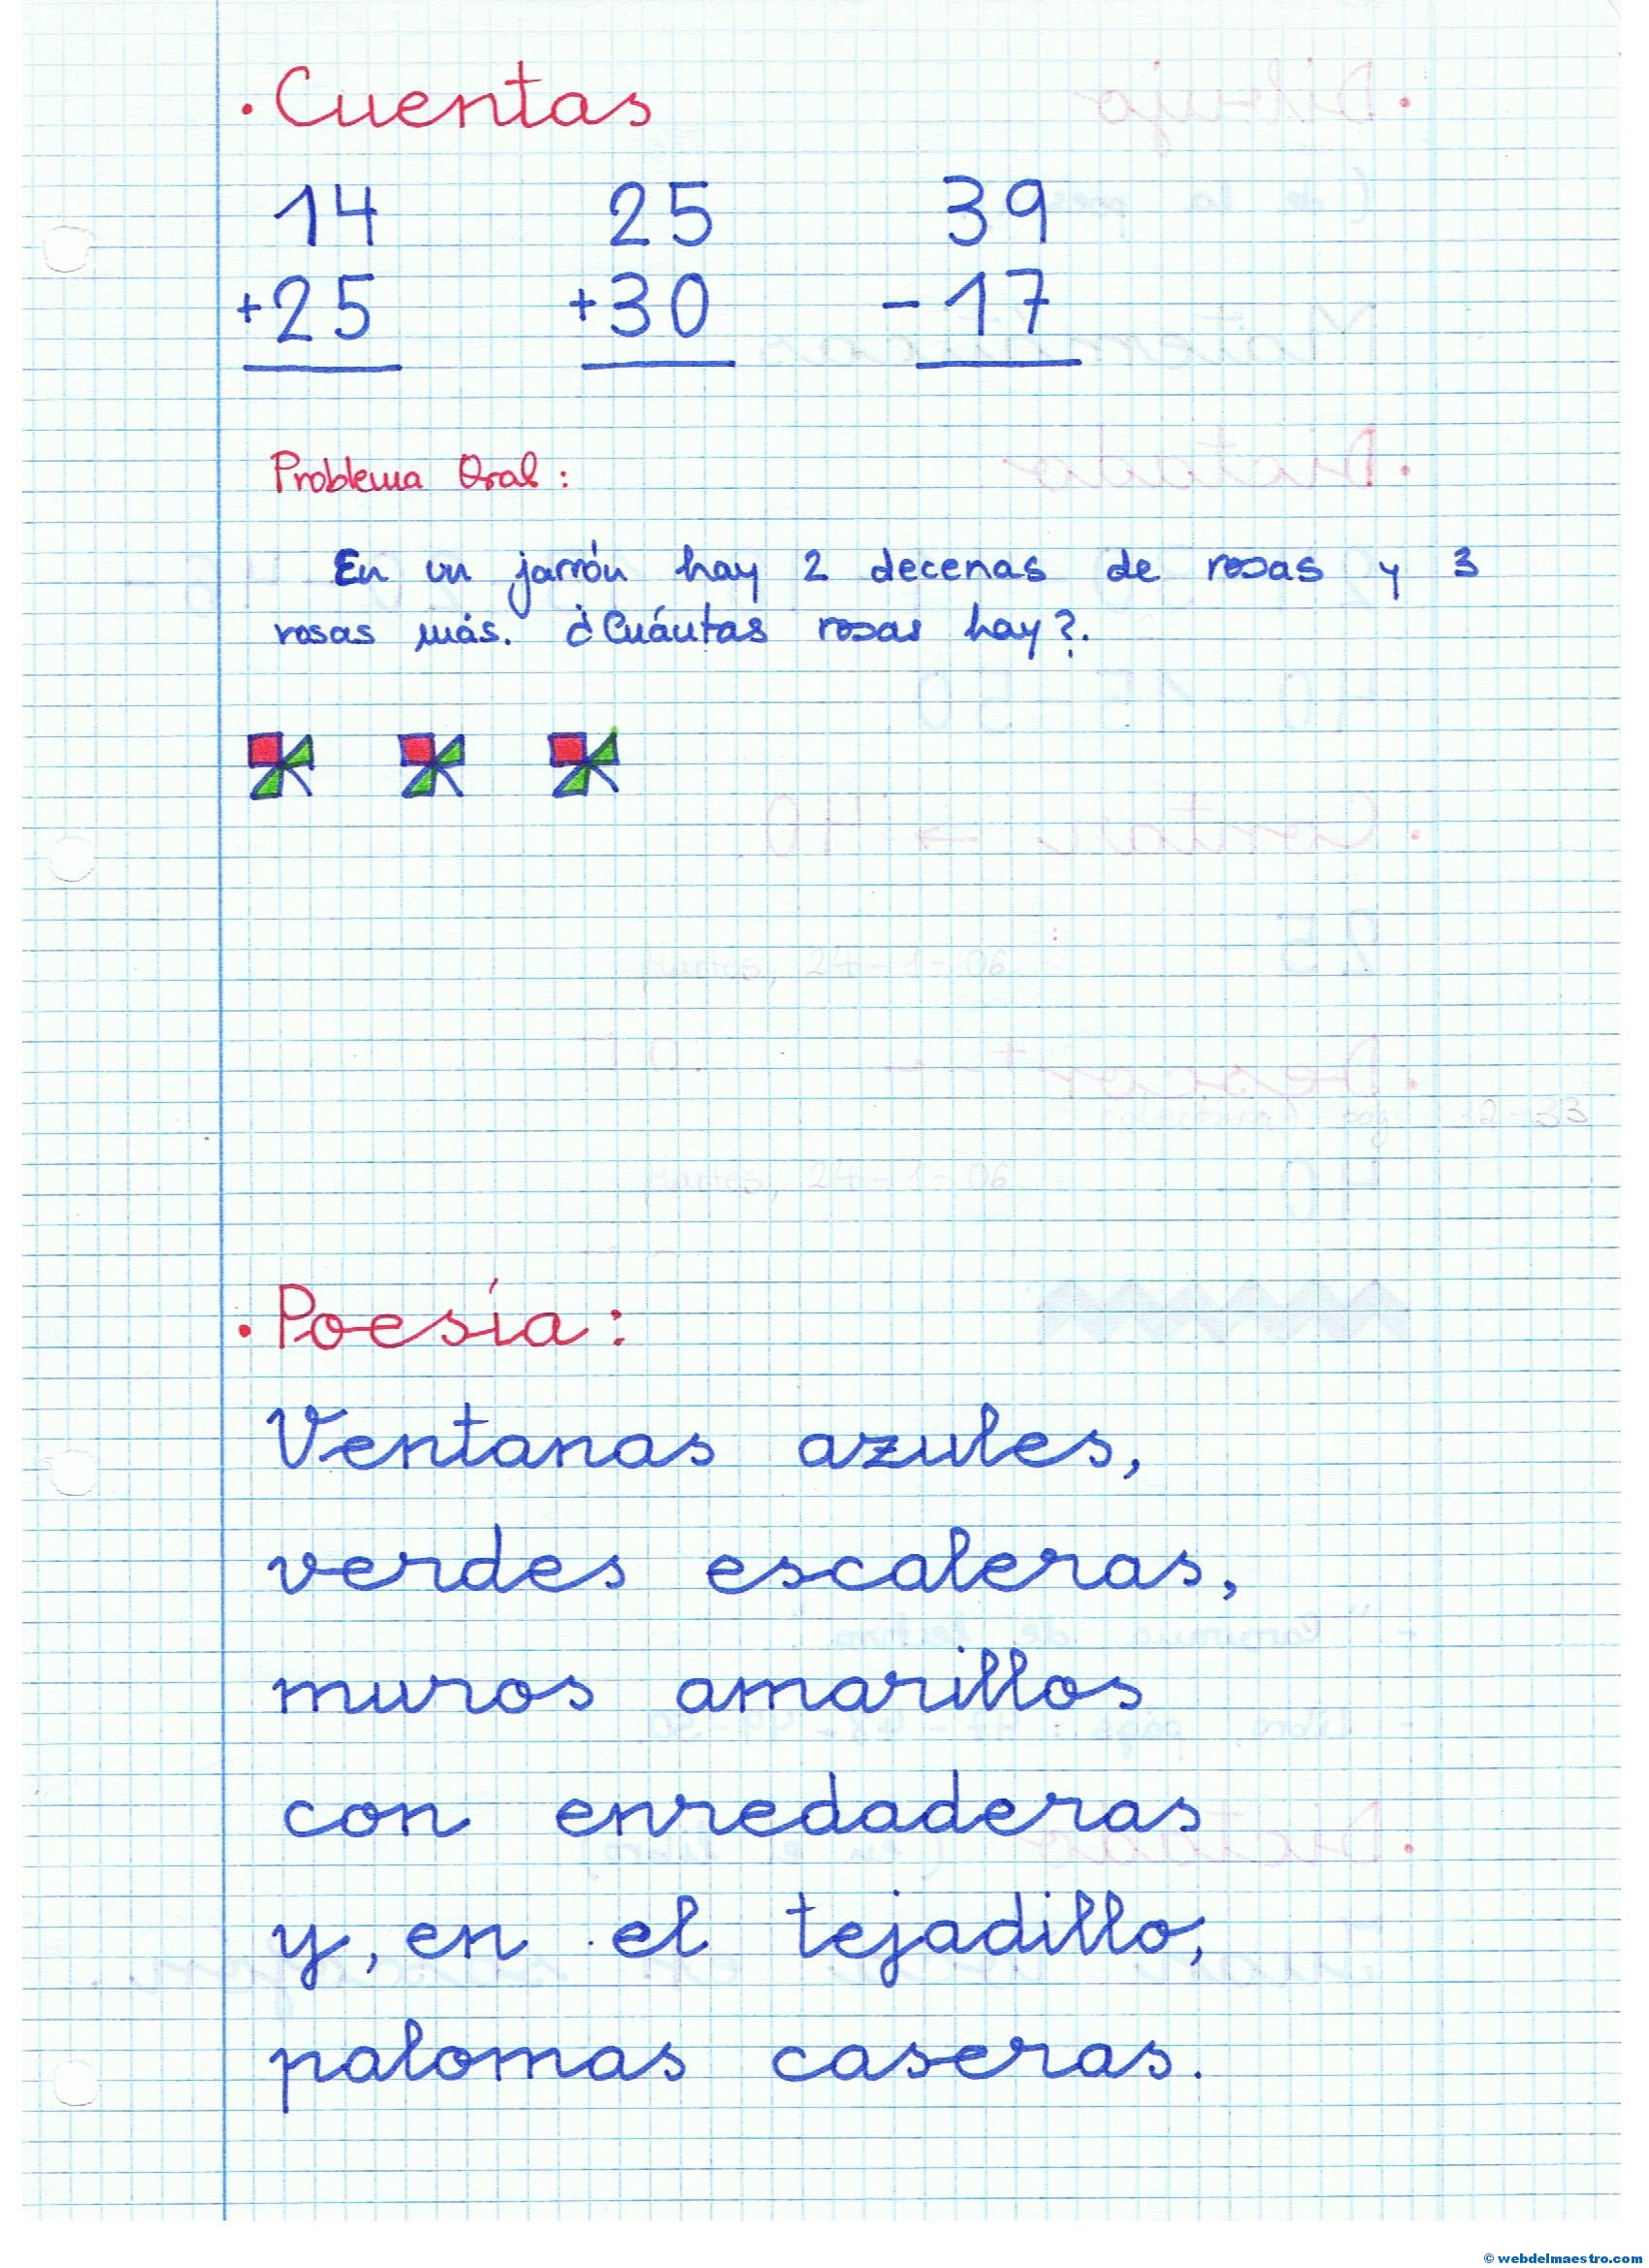 · Cuentas
14 25 39
+25 +30 -17
Problema Oral:
En un jarrón hay 2 decenas de rosas y 3
rosas más. ¿Cuántas rosas hay?.
· Poesía:
Ventanas azules,
verdes escaleras,
muros amarillos
con enredaderas
y, en el tejadillo,
palomas caseras.
© webdelmaestro.com